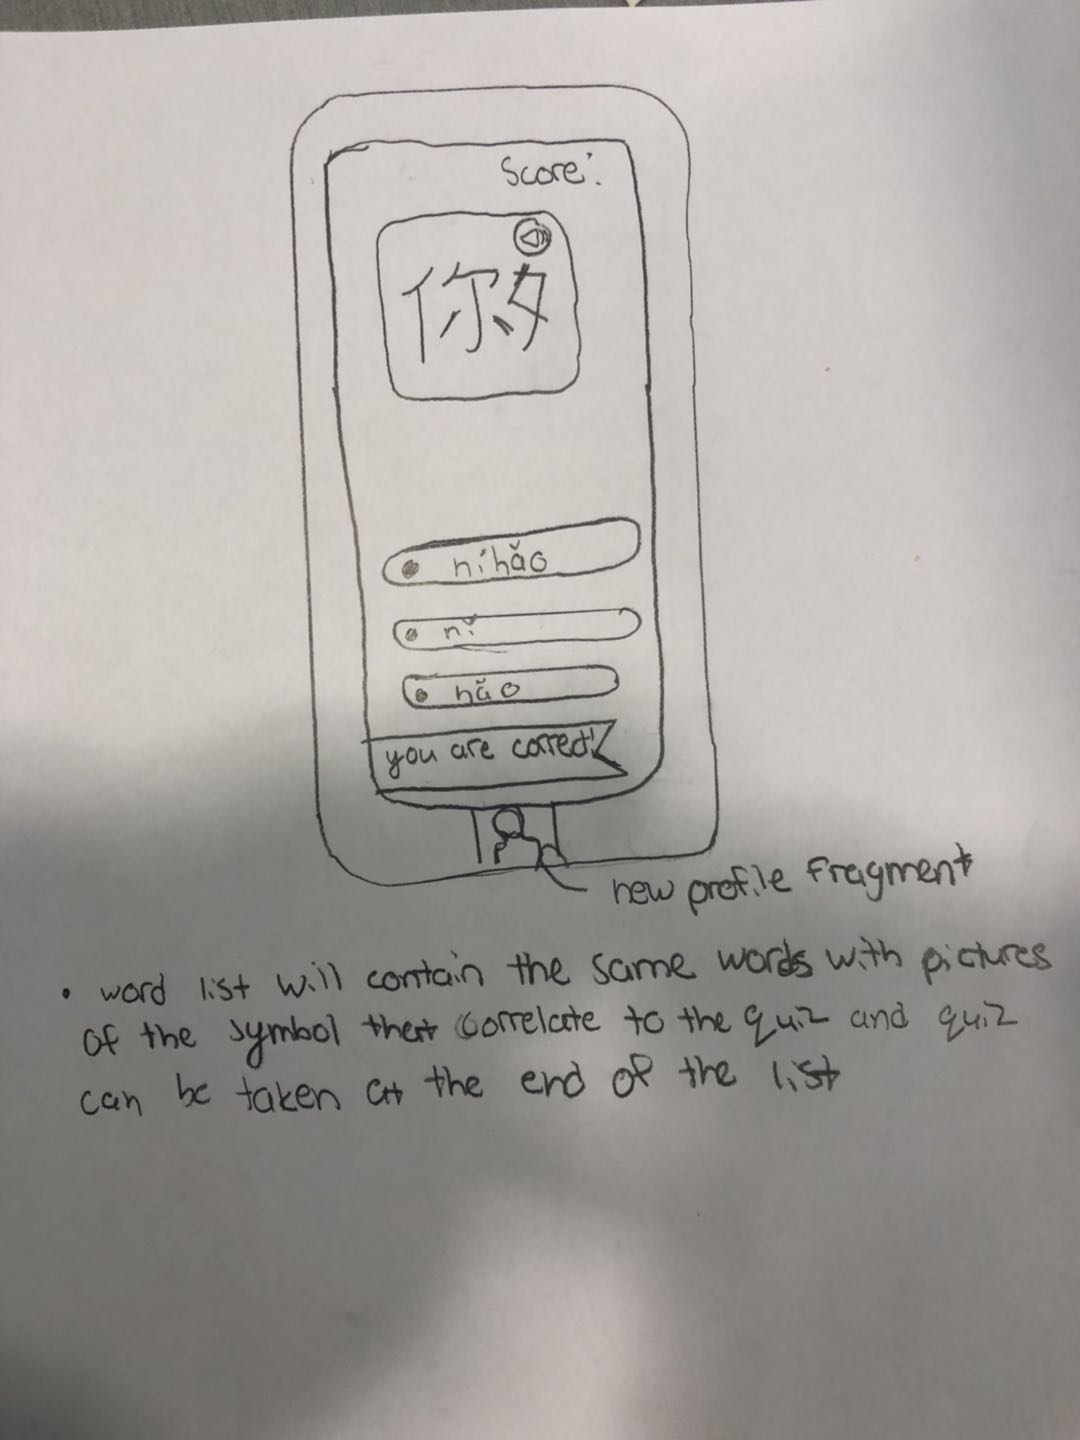 Score:
你
níhǎo
nǐ
hǎo
you are correct!
new profile fragment
• word list will contain the same words with pictures
of the symbol that correlate to the quiz and quiz
can be taken at the end of the list